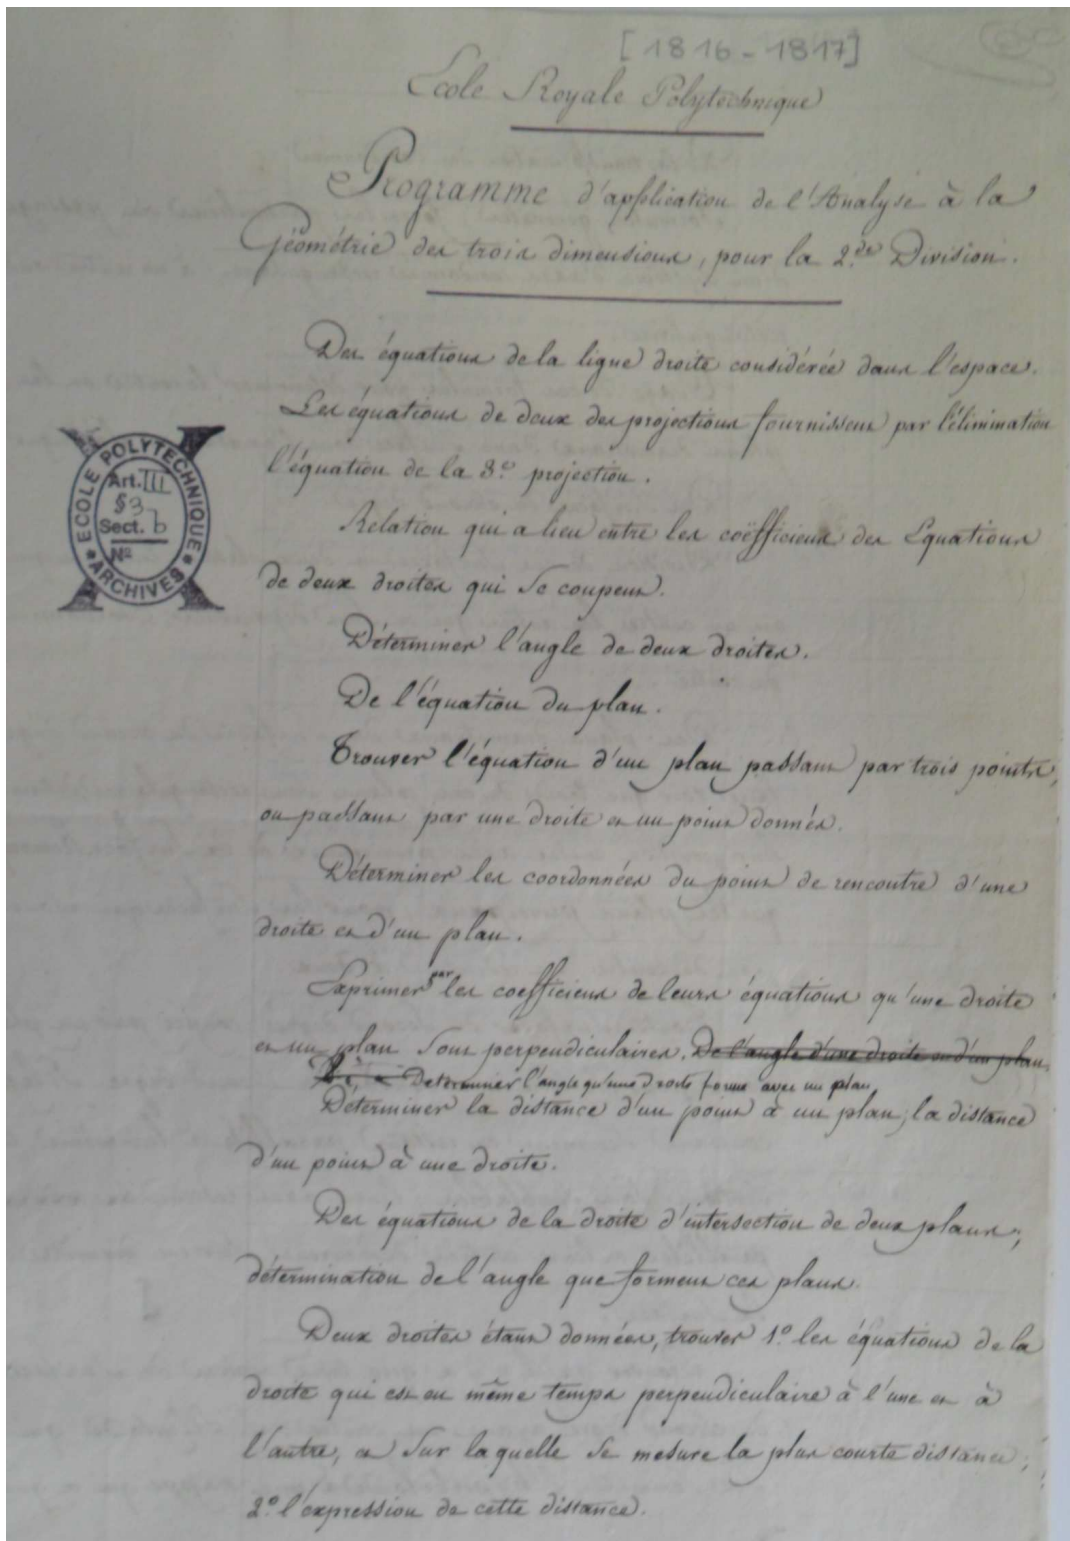 [1816-1817]
Ecole Royale Polytechnique
Programme d'application de l'Analyse à la
Géométrie des trois dimensions, pour la 2.de Division.
Des équations de la ligne droite considérée dans l'espace.
Les équations de deux des projections fournissent par l'élimination
l'équation de la 3.e projection.
Relation qui a lieu entre les coëfficiens des Equations
de deux droites qui se coupent.
Déterminer l'angle de deux droites.
De l'équation du plan.
Trouver l'équation d'un plan passant par trois points,
ou passant par une droite et un point donnés.
Déterminer les coordonnées du point de rencontre d'une
droite et d'un plan.
Exprimer par les coefficiens de leurs équations qu'une droite
et un plan sont perpendiculaires. De l'angle d'une droite et d'un plan.
Déterminer l'angle qu'une droite forme avec un plan,
Déterminer la distance d'un point à un plan; la distance
d'un point à une droite.
Des équations de la droite d'intersection de deux plans;
détermination de l'angle que forment ces plans.
Deux droites étant données, trouver 1.o les équations de la
droite qui est en même temps perpendiculaire à l'une et à
l'autre, et sur laquelle se mesure la plus courte distance;
2.o l'expression de cette distance.
ECOLE POLYTECHNIQUE
Art. III
§3
Sect. b
No
* ARCHIVES *